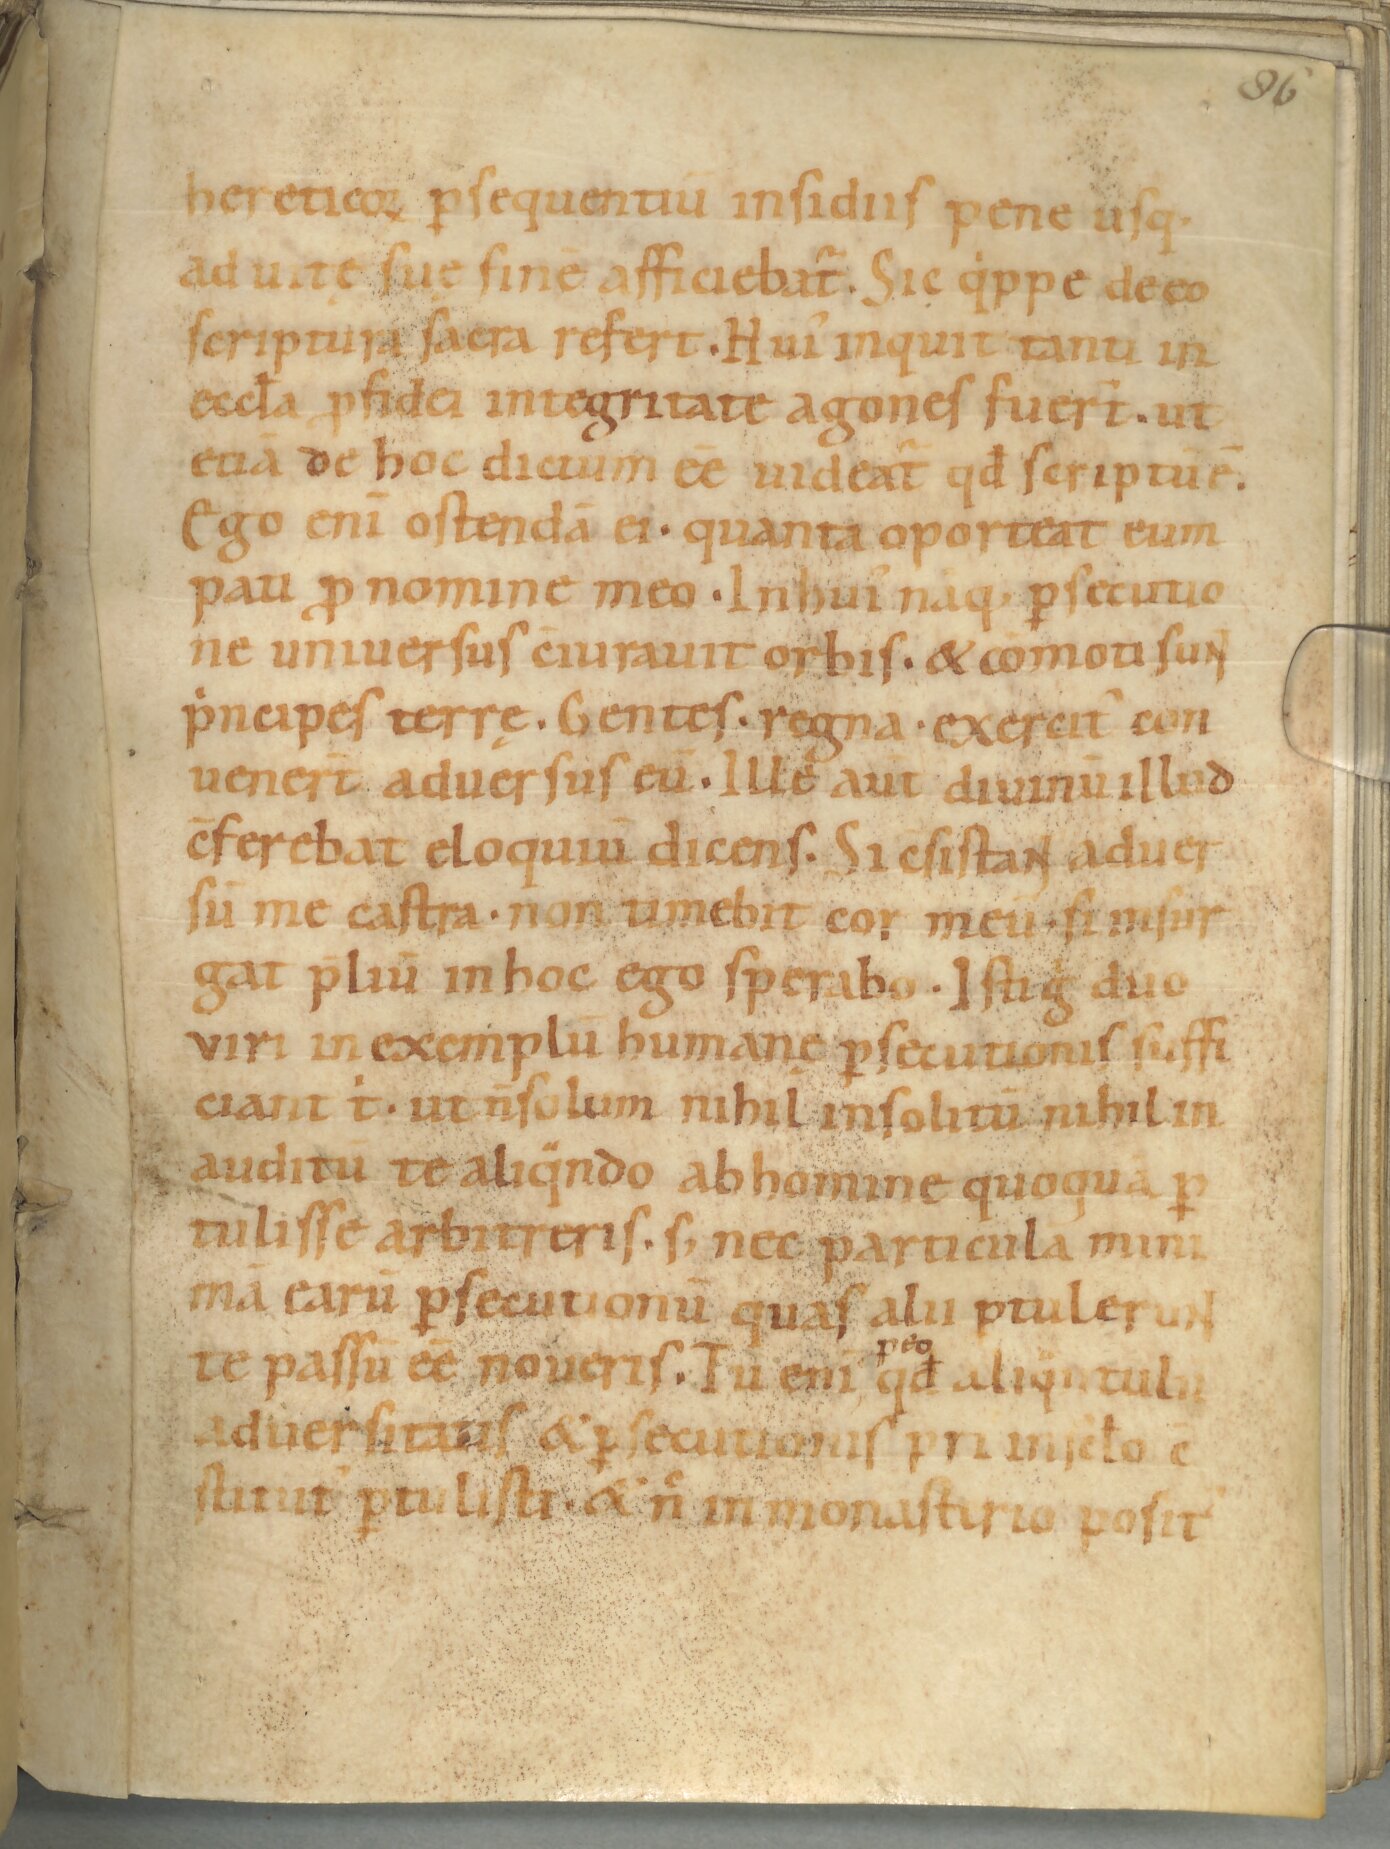 86
hereticoꝝ ꝑsequentiū insidiis pene usq·
ad uitę suę finē afficiebat᷑. Sic q̇ppe de eo
scriptura sacra refert. Hui᾽ inquit tanti in
eccl̄a ꝓfidei integritate agones fuer̄t. ut
etiā de hoc dictum ēē uideat᷑ qđ scriptū ē.
Ego enī ostendā ei. quanta oporteat eum
pati ꝓ nomine meo. In hui᾽ nāq, ꝑsecutio
ne uniuersus c̄iurauit orbis. & cōmoti sunt
p̍ncipes terrę. Gentes. regna. exercit᾽ con
uener̄t aduersus eū. Ille aūt diuinū illud
c̄ferebat eloquiū dicens. Si c̄sistant aduer
sū me castra. non timebit cor meū. si insur
gat p̄liū in hoc ego sperabo. Isti g̍ duo
viri in exemplū humanę ꝑsecutionis suffi
ciant t̍. ut n̄ solum nihil insolitū nihil in
auditū te aliq̈ndo ab homine quoquā ꝑ
tulisse arbitreris. s, nec particula mini
mā earū ꝑsecutionū quas alii ꝑtulerunt
te passū ēē noueris. Tu enī peo qđ aliq̈ntulū
aduersitatis & ꝑsecutionis pri in sc̄lo c̄
stitut᾽ ꝑtulisti. & n̄ in monastirio posit᾽